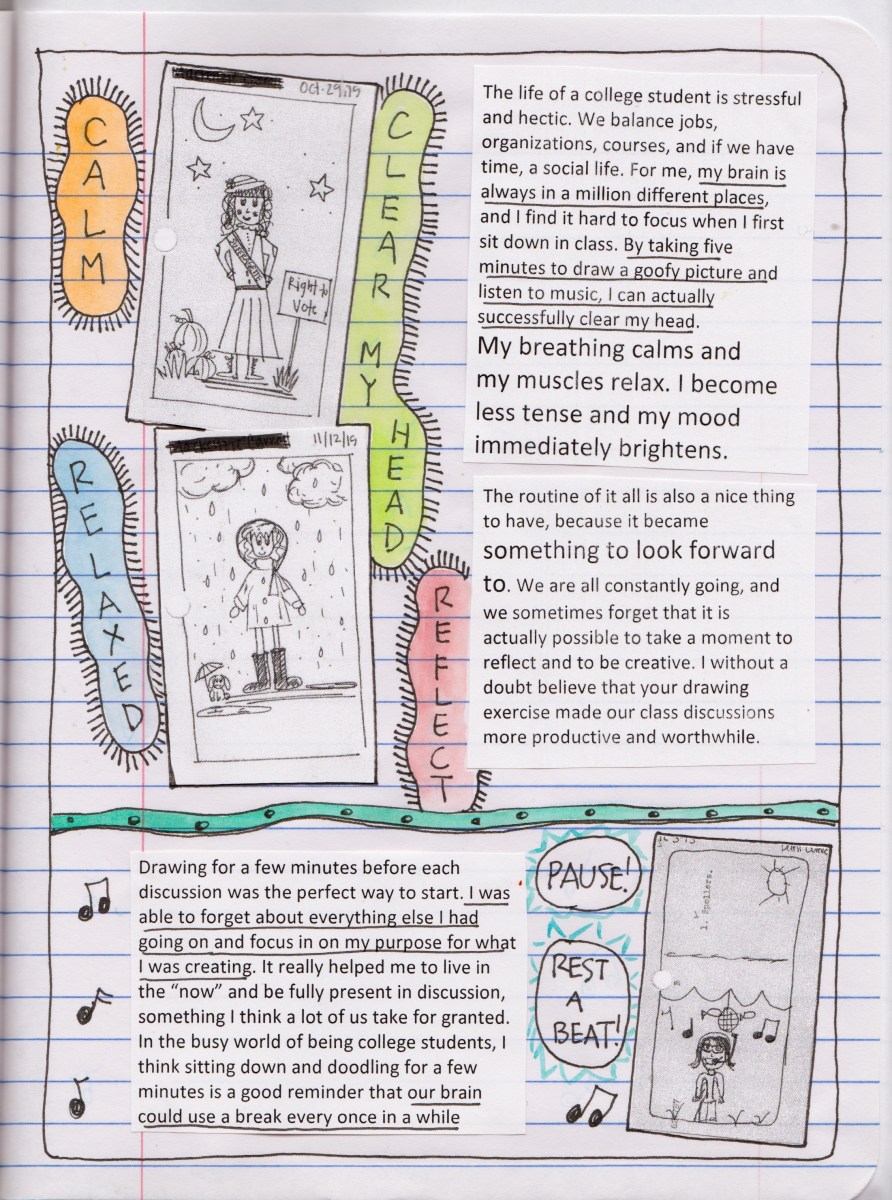 CALM
Oct. 29, 15
Right to
Vote
CLEAR MY HEAD
The life of a college student is stressful
and hectic. We balance jobs,
organizations, courses, and if we have
time, a social life. For me, my brain is
always in a million different places,
and I find it hard to focus when I first
sit down in class. By taking five
minutes to draw a goofy picture and
listen to music, I can actually
successfully clear my head.
My breathing calms and
my muscles relax. I become
less tense and my mood
immediately brightens.
RELAXED
11/12/15
REFLECT
The routine of it all is also a nice thing
to have, because it became
something to look forward
to. We are all constantly going, and
we sometimes forget that it is
actually possible to take a moment to
reflect and to be creative. I without a
doubt believe that your drawing
exercise made our class discussions
more productive and worthwhile.
Drawing for a few minutes before each
discussion was the perfect way to start. I was
able to forget about everything else I had
going on and focus in on my purpose for what
I was creating. It really helped me to live in
the “now” and be fully present in discussion,
something I think a lot of us take for granted.
In the busy world of being college students, I
think sitting down and doodling for a few
minutes is a good reminder that our brain
could use a break every once in a while
PAUSE!
REST
A
BEAT!
1. Spoilers.